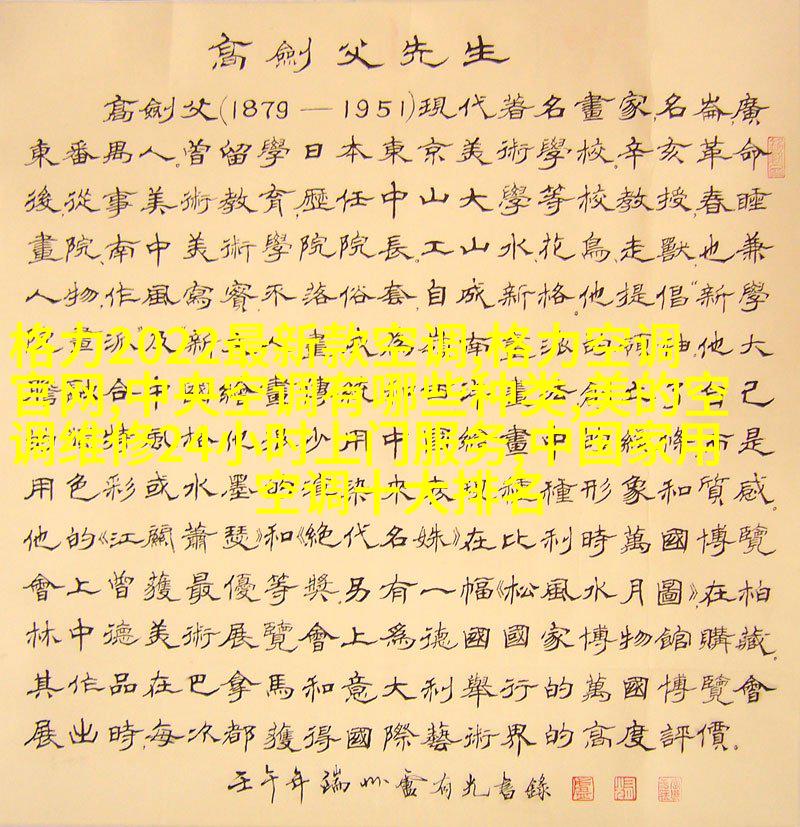 高劍父先生
高劍父(1879—1951)現代著名畫家,名崙,廣
東番禺人。曾留學日本東京美術學校,辛亥革命
後,從事美術教育,歷任中山大學等校教授,春睡
畫院、南中美術學院院長。工山水、花鳥、走獸,也兼
人物,作風寫實,不落俗套,自成新格。他提倡"新學
格力2022最新款空调,格力空调
官网,中央空调有哪些种类,美的空
调维修24小时上门服务,中国家用
空调十大排名
用色彩或水墨的渲染來表現種種形象和質感。
他的《江關蕭瑟》和《絕代名姝》在比利時萬國博覽
會上曾獲最優等獎。另有一幅《松風水月圖》,在柏
林中德美術展覽會上爲德國國家博物館購藏。
其作品在巴拿馬和意大利舉行的萬國博覽會
展出時,每次都獲得國際藝術界的高度評價。
壬午年端州盧有光書錄